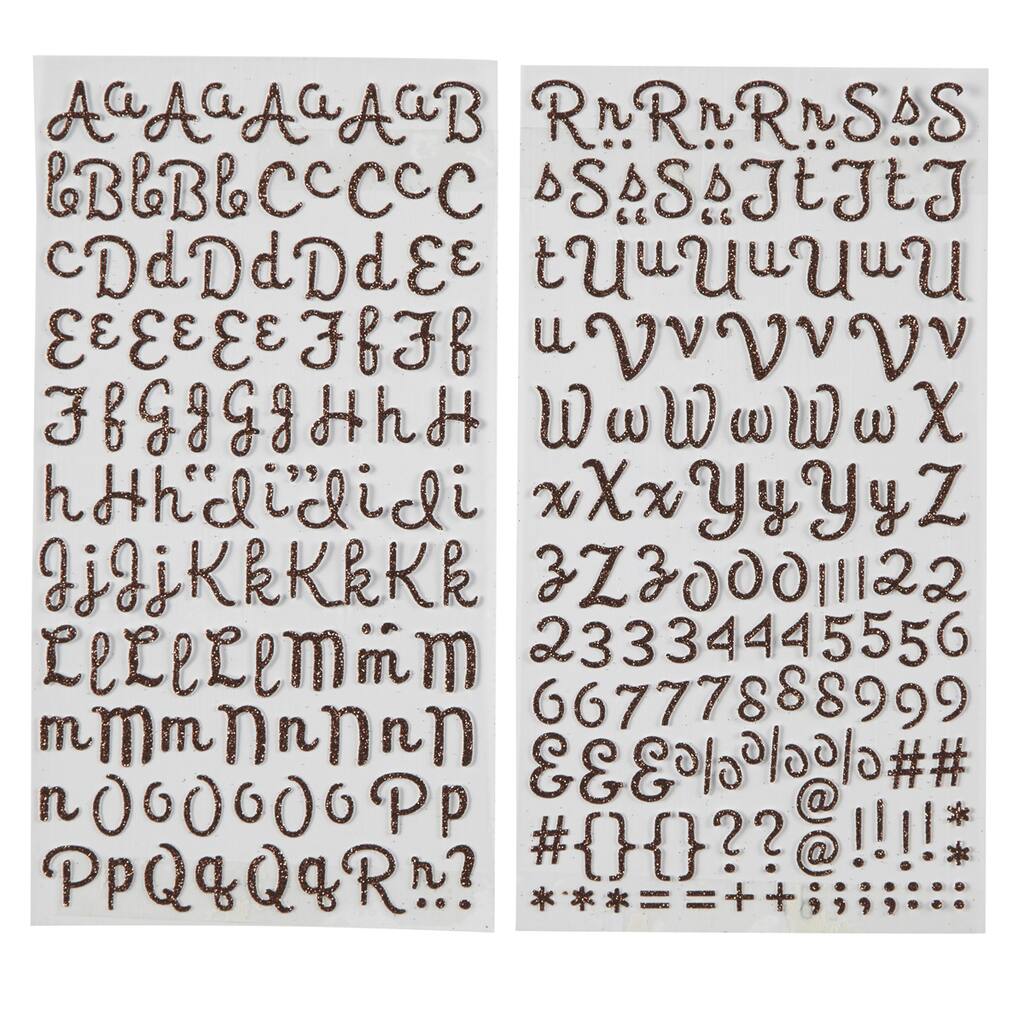 AaAaAaAaB
bBbBbCcCcC
cDdDdDdEe
EeEeEeFfFf
FfGgGgHhH
hHh“Ii”IiIi
JjJjKkKkKk
LlLlLlMm¨M
mMmNnNnN
nOoOoOoPp
PpQqQqRr?...
RrRrRrSsS
sSsSsTtTtT
tUuUuUuU
uVvVvVv
WwWwWwX
xXxYyYyZ
zZz00011122
23334445556
66777888999
&&&%%%##
#{}{}??@@!!!!**
***==++;;;:::